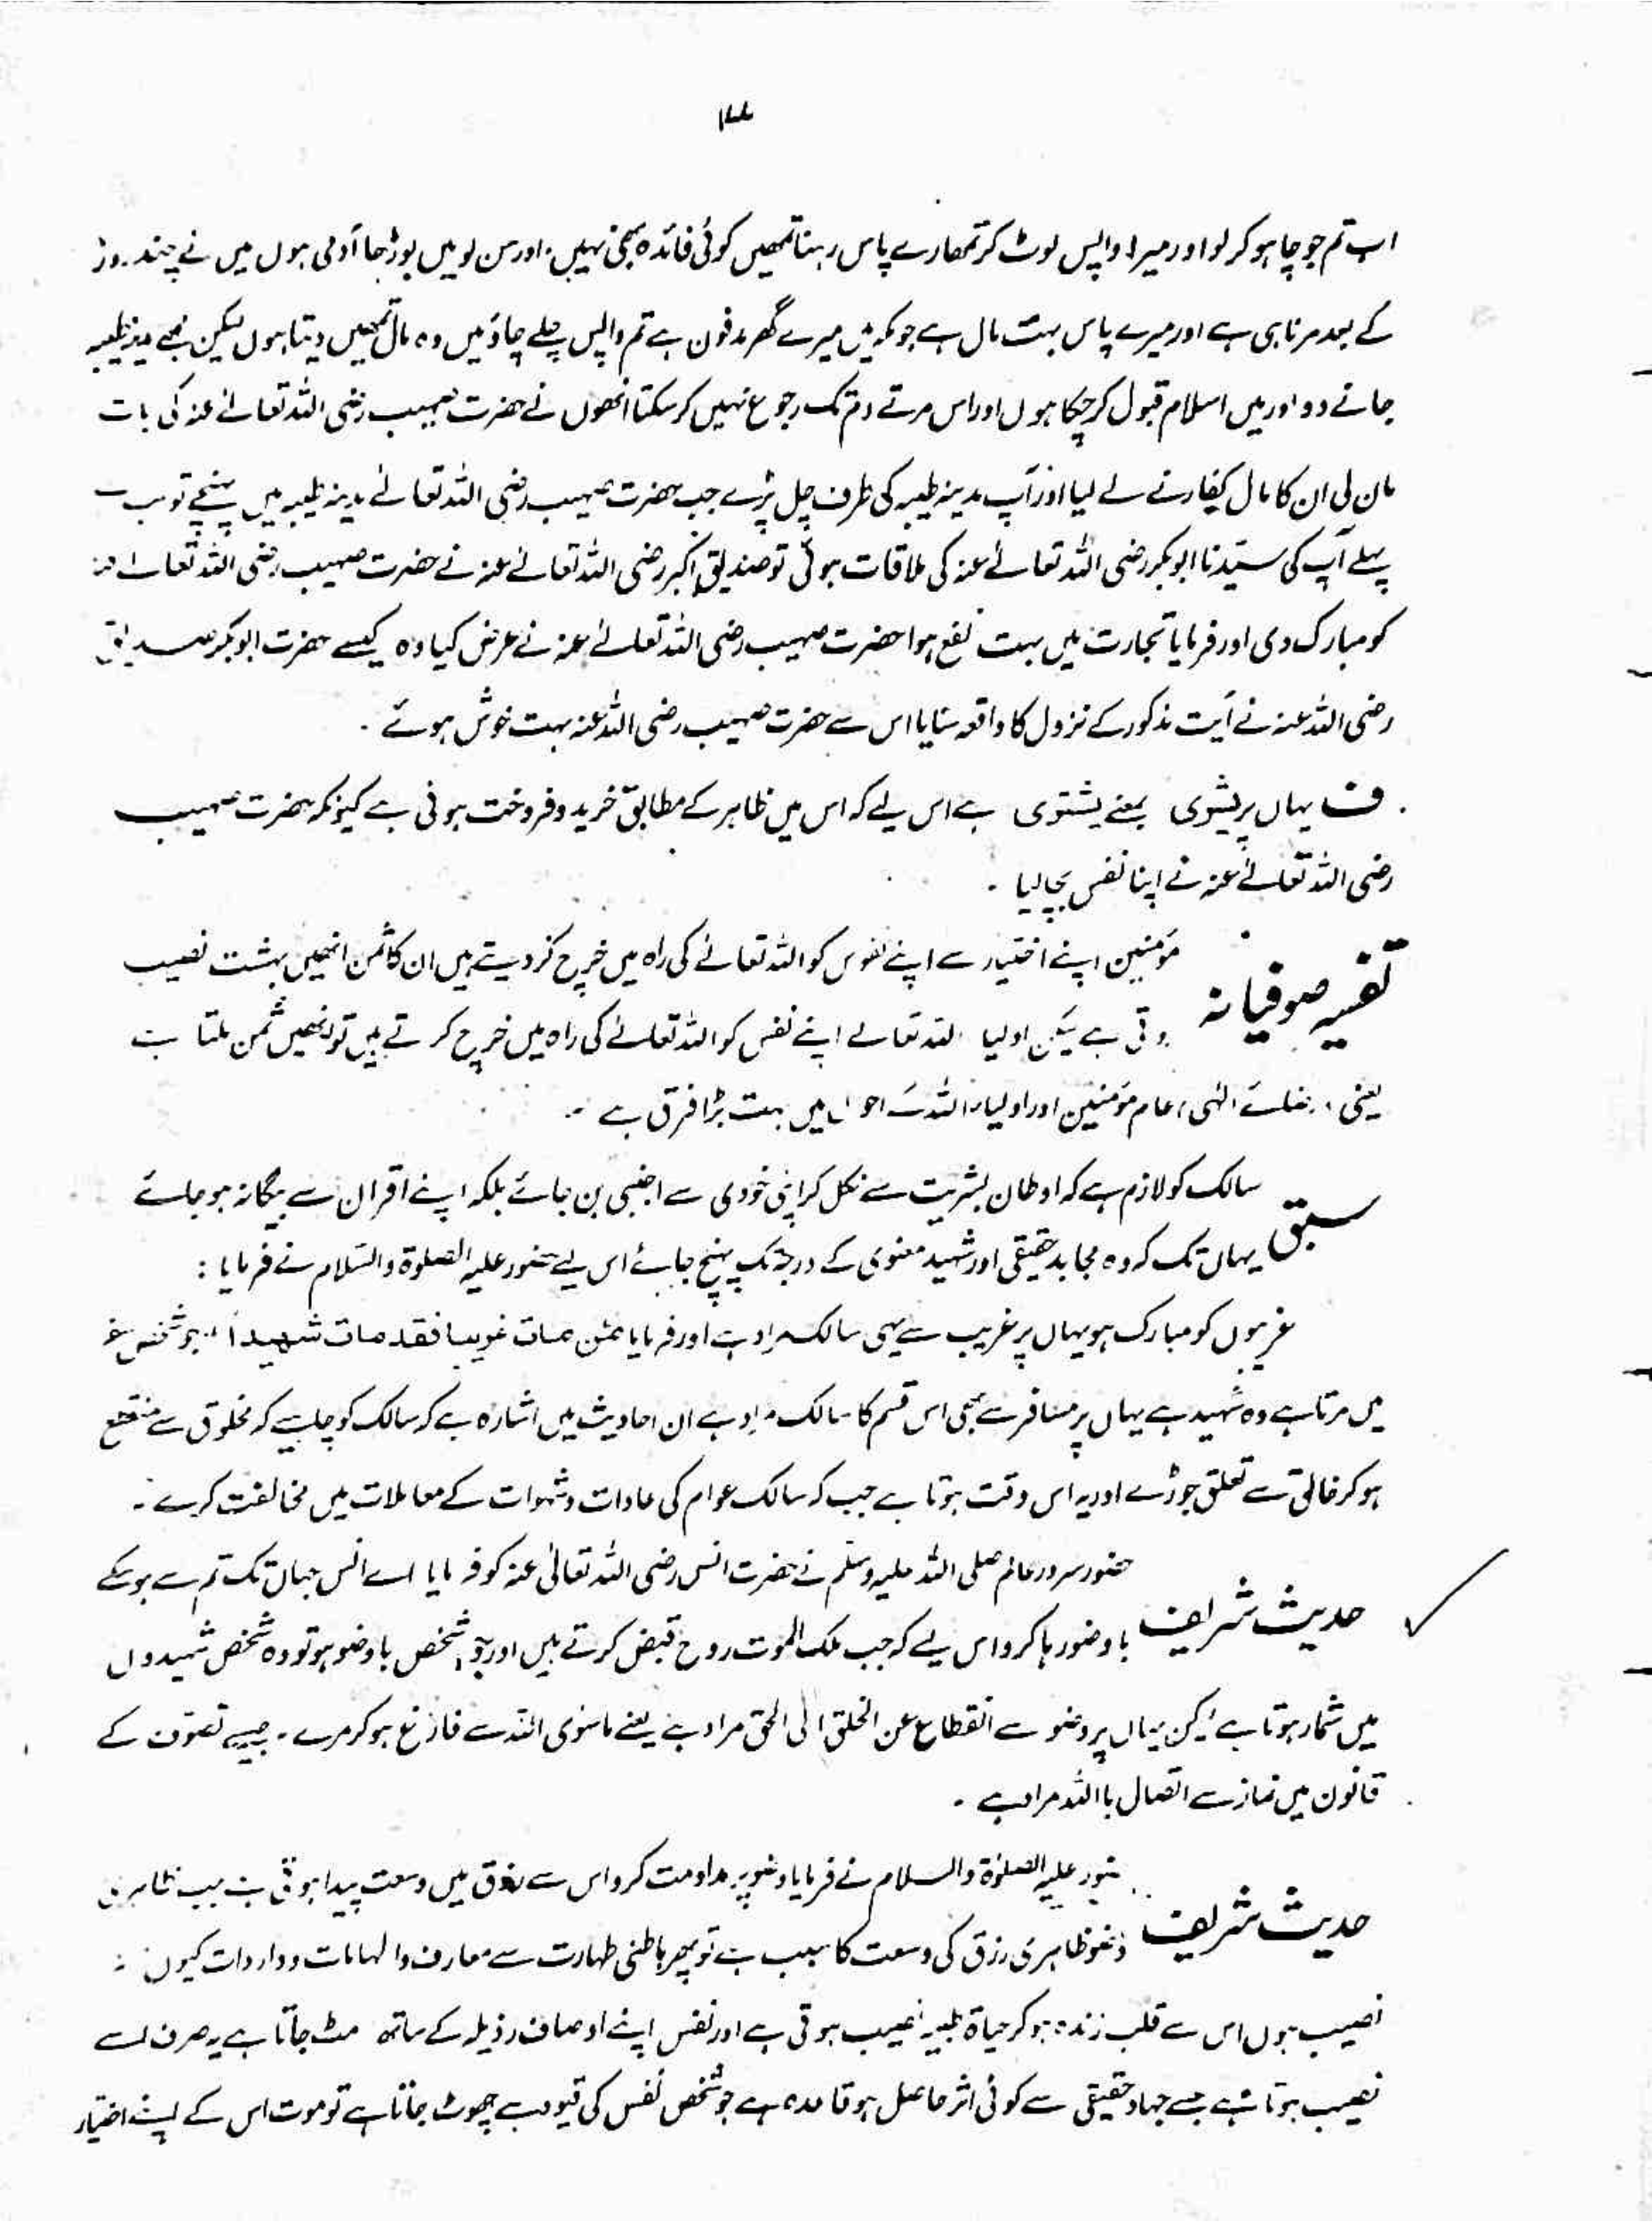 اب تم جو چاہو کر لو اور میرا واپس لوٹ کر تمھارے پاس رہنا تمھیں کوئی فائدہ بھی نہیں، اور سن لو میں بوڑھا آدمی ہوں میں نے چند روز
کے بعد مرنا ہی ہے اور میرے پاس بہت مال ہے جو مکہ میں میرے گھر مدفون ہے تم واپس چلے جاؤ میں وہ مال تمھیں دیتا ہوں لیکن مجھے مدینہ طیبہ
جانے دو اور میں اسلام قبول کر چکا ہوں اور اس مرتے دم تک رجوع نہیں کر سکتا انھوں نے حضرت صہیب رضی اللہ تعالےٰ عنہ کی بات
مان لی ان کا مال کفار نے لے لیا اور آپ مدینہ طیبہ کی طرف چل پڑے جب حضرت صہیب رضی اللہ تعالےٰ مدینہ طیبہ میں پہنچے تو سب سے
پہلے آپ کی سیّدنا ابوبکر رضی اللہ تعالےٰ عنہ کی ملاقات ہوئی تو صدیق اکبر رضی اللہ تعالےٰ عنہ نے حضرت صہیب رضی اللہ تعالےٰ عنہ
کو مبارک دی اور فرمایا تجارت میں بہت نفع ہوا حضرت صہیب رضی اللہ تعالےٰ عنہ نے عرض کیا وہ کیسے حضرت ابوبکر صدیق
رضی اللہ عنہ نے آیت مذکور کے نزول کا واقعہ سنایا اس سے حضرت صہیب رضی اللہ عنہ بہت خوش ہوئے ۔
ف یہاں پر یشری بمعنے یشتری ہے اس لیے کہ اس میں ظاہر کے مطابق خرید و فروخت ہوئی ہے کیونکہ حضرت صہیب
رضی اللہ تعالےٰ عنہ نے اپنا نفس بچا لیا ۔
تفسیر صوفیانہ مؤمنین اپنے اختیار سے اپنے نفوس کو اللہ تعالےٰ کی راہ میں خرچ کر دیتے ہیں ان کا ثمن انھیں بہشت نصیب
ہوتی ہے لیکن اولیا اللہ تعالےٰ اپنے نفس کو اللہ تعالےٰ کی راہ میں خرچ کرتے ہیں تو انھیں ثمن ملتا ہے
یعنی الٰہی، عام مؤمنین اور اولیاء اللہ کے احوال میں بہت بڑا فرق ہے ۔
سبق سالک کو لازم ہے کہ اوطان بشریت سے نکل کر اپنی خودی سے اجنبی بن جائے بلکہ اپنے اقران سے بیگانہ ہو جائے
یہاں تک کہ وہ مجاہد حقیقی اور شہید معنوی کے درجہ تک پہنچ جائے اس لیے حضور علیہ الصلوٰۃ والسّلام نے فرمایا :
غریبوں کو مبارک ہو یہاں پر غریب سے یہی سالک مراد ہے اور فرمایا من مات غریبا فقد مات شہیداً جو شخص
میں مرتا ہے وہ شہید ہے یہاں پر مسافر سے بھی اس قسم کا سالک مراد ہے ان احادیث میں اشارہ ہے کہ سالک کو چاہیے کہ مخلوق سے منقطع
ہو کر خالق سے تعلق جوڑے اور یہ اس وقت ہوتا ہے جب کہ سالک عوام کی عادات و شہوات کے معاملات میں مخالفت کرے ۔
حدیث شریف حضور سرور عالم صلی اللہ علیہ وسلم نے حضرت انس رضی اللہ تعالیٰ عنہ کو فرمایا اے انس جہاں تک تم سے ہو سکے
با وضو رہا کرو اس لیے کہ جب ملک الموت روح قبض کرتے ہیں اور جو شخص با وضو ہو تو وہ شخص شہیدوں
میں شمار ہوتا ہے لیکن یہاں پر وضو سے انقطاع عن الخلق الی الحق مراد ہے یعنے ماسوی اللہ سے فارغ ہو کر مرے ۔ جیسے تصوّف کے
قانون میں نماز سے اتصال با اللہ مراد ہے ۔
حدیث شریف حضور علیہ الصلوٰۃ والسلام نے فرمایا وضو پر مداومت کرو اس سے رزق میں وسعت پیدا ہوتی ہے جب ظاہری
وضو ظاہری رزق کی وسعت کا سبب ہے تو پھر باطنی طہارت سے معارف و الہامات و واردات کیوں نہ
نصیب ہوں اس سے قلب زندہ ہو کر حیاۃ طیبہ نصیب ہوتی ہے اور نفس اپنے اوصاف رذیلہ کے ساتھ مٹ جاتا ہے یہ صرف اسے
نصیب ہوتا ہے جسے جہاد حقیقی سے کوئی اثر حاصل ہو قاعدہ ہے جو شخص نفس کی قیود سے چھوٹ جاتا ہے تو موت اس کے اپنے اختیار